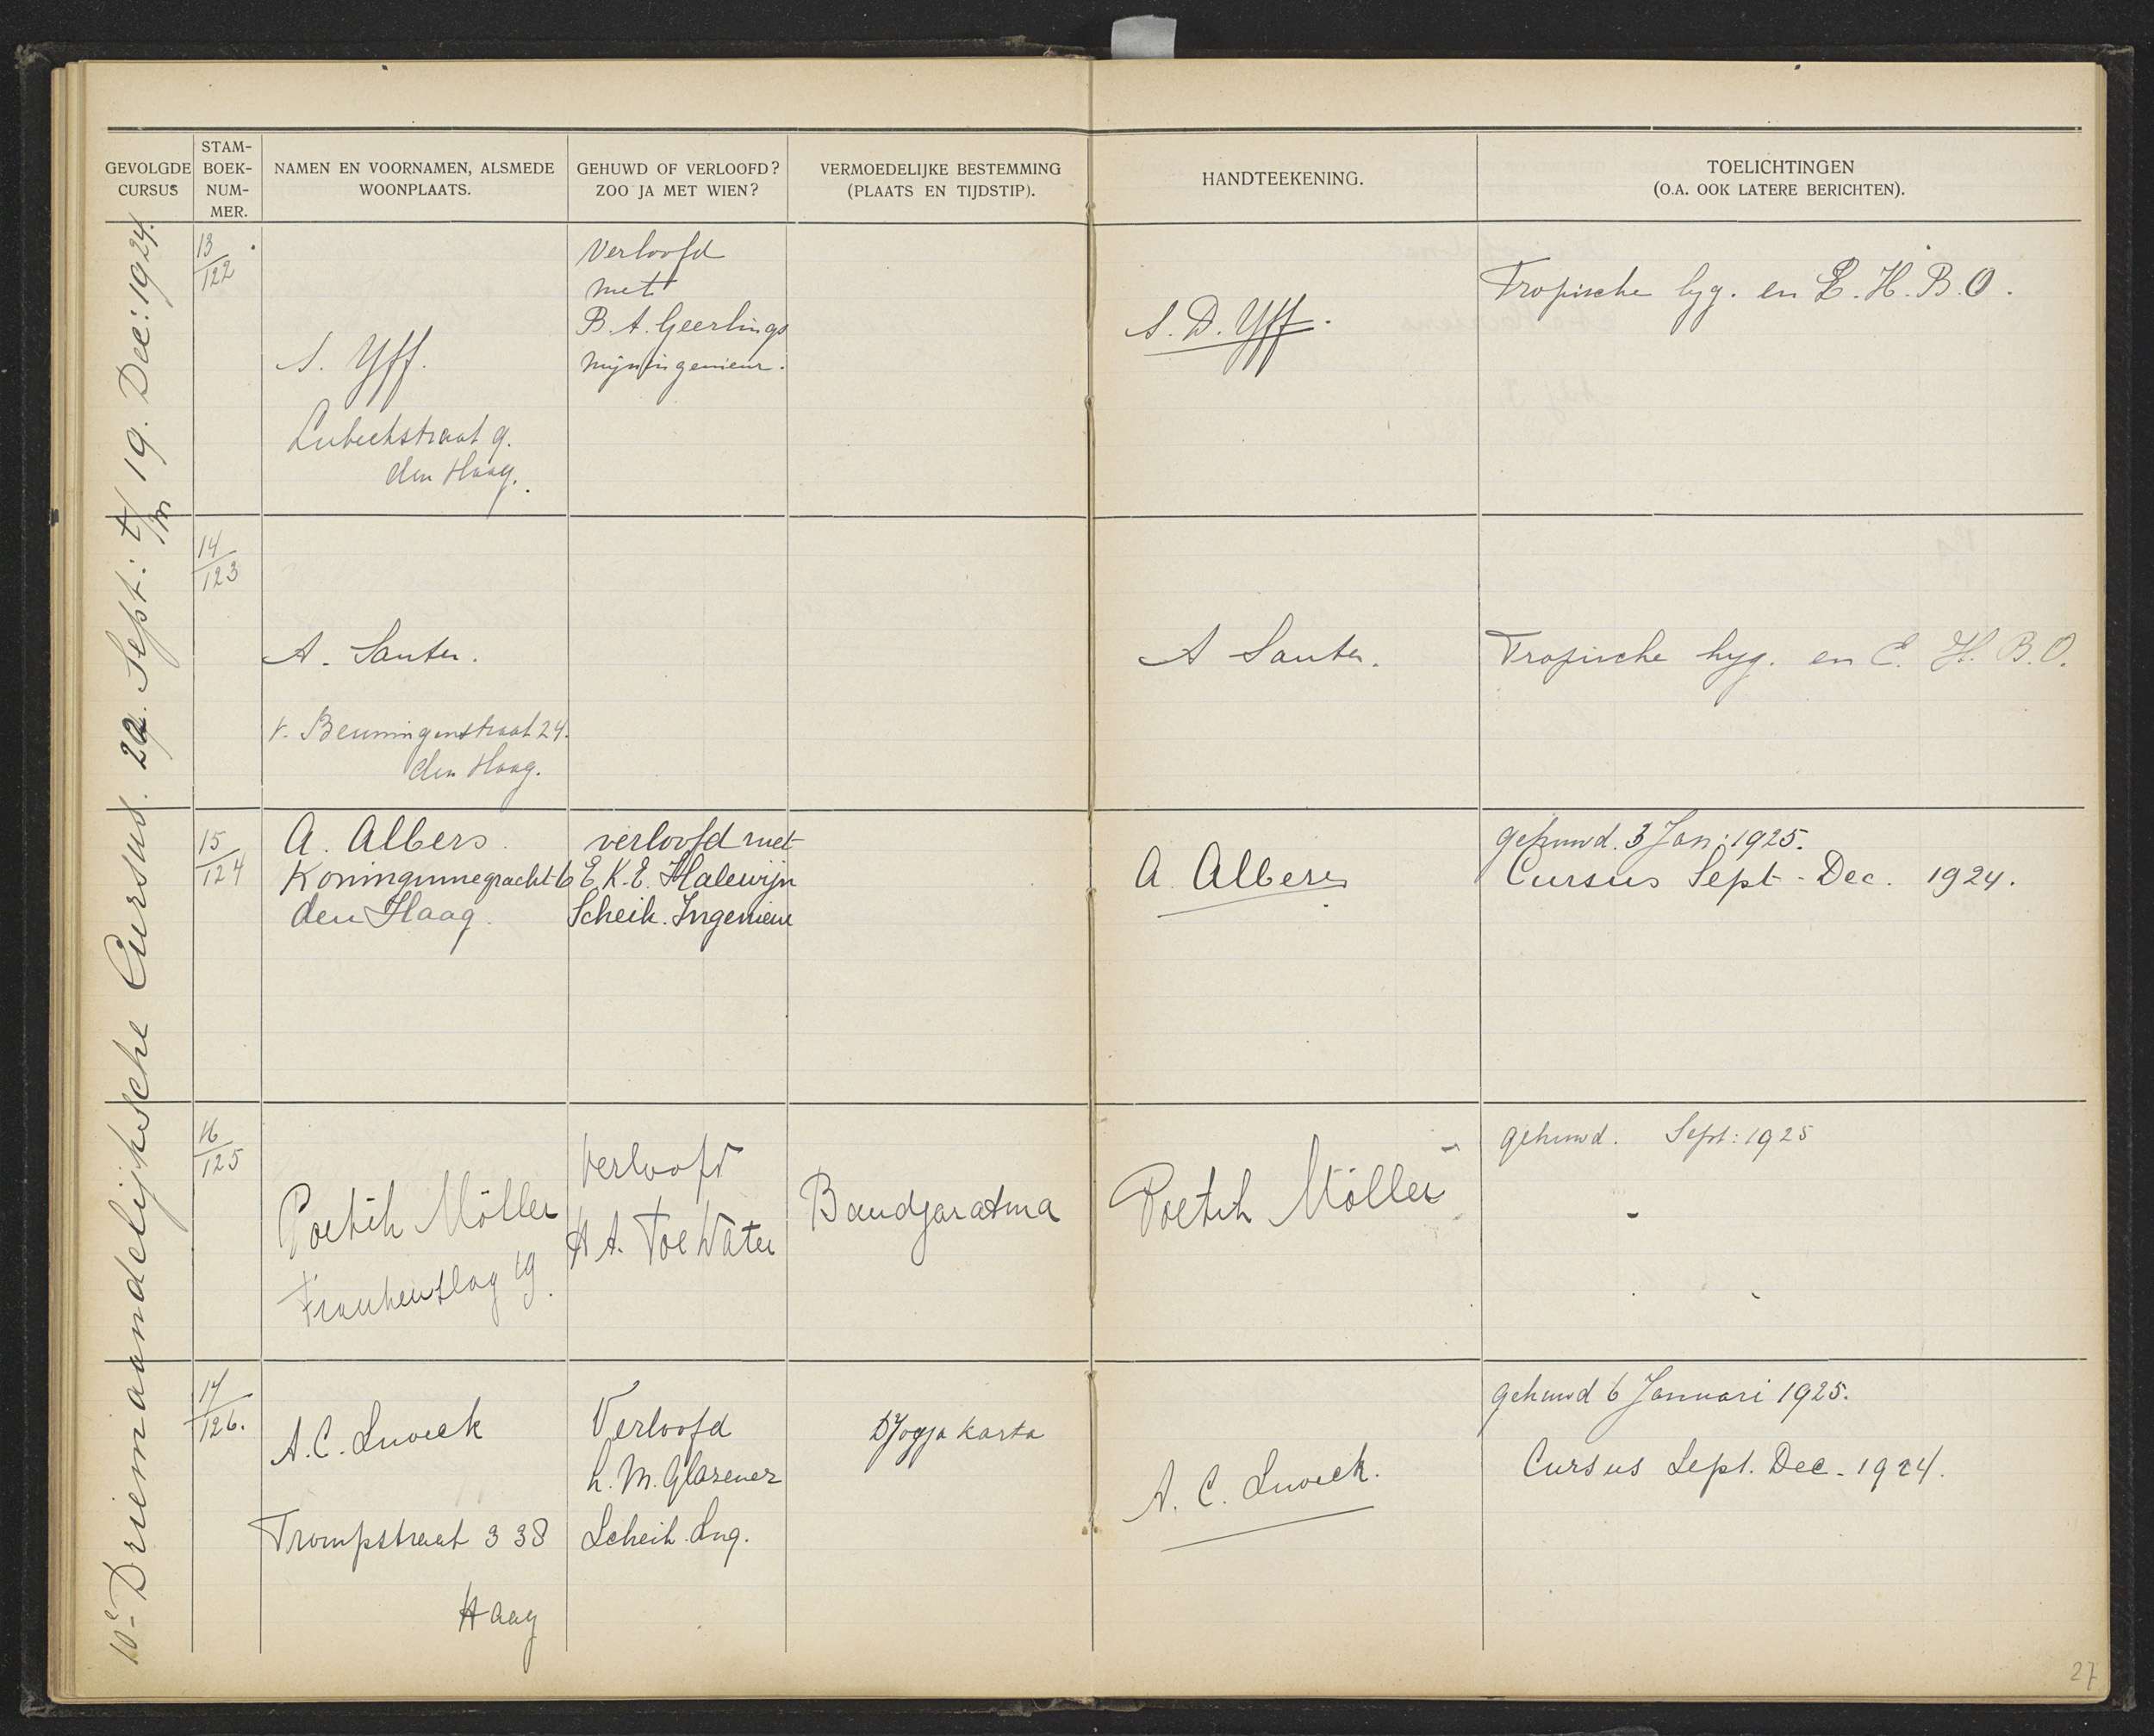 GEVOLGDE
CURSUS
STAM-
BOEK-
NUM-
MER.
NAMEN EN VOORNAMEN, ALSMEDE
WOONPLAATS.
GEHUWD OF VERLOOFD?
ZOO JA MET WIEN?
VERMOEDELIJKE BESTEMMING
(PLAATS EN TIJDSTIP).
HANDTEEKENING.
TOELICHTINGEN
(O.A. OOK LATERE BERICHTEN).
10e Driemaandelijksche Cursus. 22. Sept: t/m 19. Dec: 1924.
13
122
S. Yff.
Lubeckstraat 9.
den Haag.
Verloofd
met
B. A. Geerlings
mijningenieur.
S. D. Yff.
Tropische hyg. en E. H. B. O.
14
123
A. Sauter.
v. Beuningenstraat 24.
den Haag.
A Sauter.
Tropische hyg. en E. H. B. O.
15
124
A. Albers.
Koninginnegracht 6
den Haag.
verloofd met
E. K. E. Halewijn
Scheik. Ingenieur
A. Albers
gehuwd. 3 Jan: 1925.
Cursus Sept - Dec. 1924.
16
125
Poetih Möller
Frankenslag 19.
Verloofd
H A. Toe Water
Bandjaratma
Poetih Möller
gehuwd. Sept: 1925
17
126.
A. C. Snoeck
Trompstraat 338
Haag
Verloofd
L. M. Glasener
Scheik. Ing.
Djogja karta
A. C. Snoeck.
gehuwd 6 Januari 1925.
Cursus Sept. Dec - 1924.
27